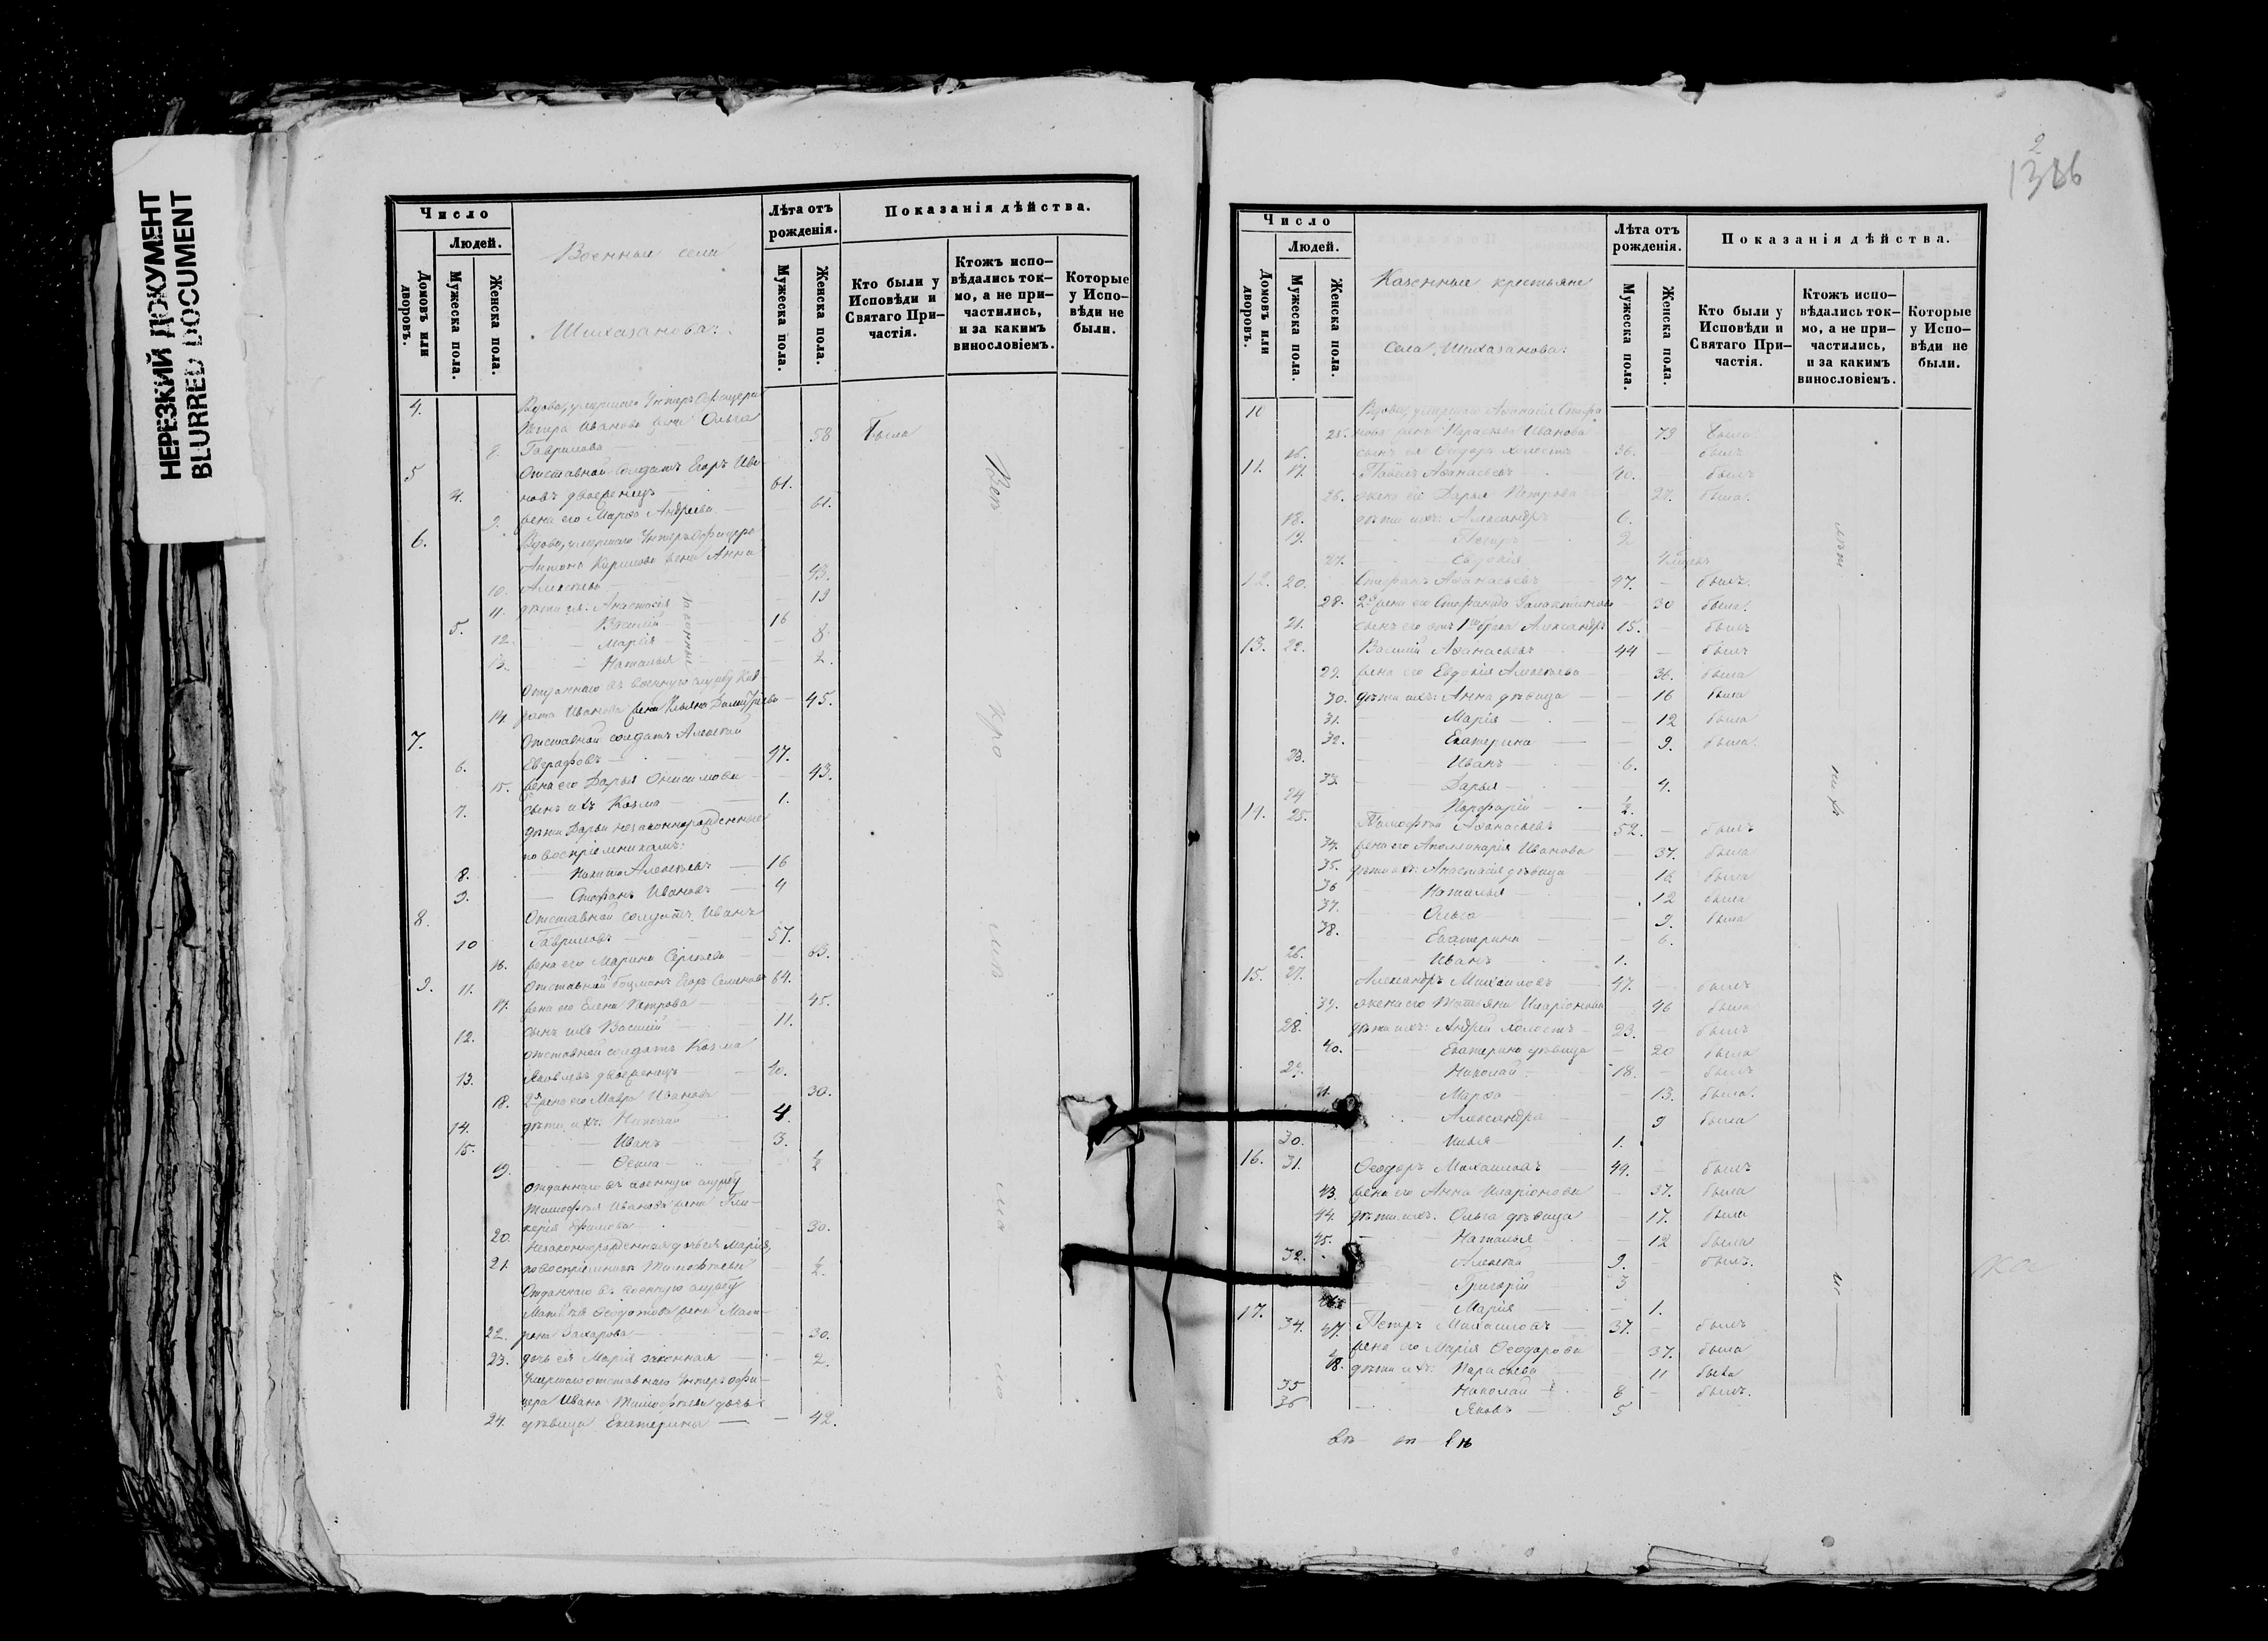 НЕРЕЗКИЙ ДОКУМЕНТ
BLURRED DOCUMENT
Число
Людей.
Домовъ или дворовъ.
Мужеска пола.
Женска пола.
Военныи села
Шихазанова:
Лѣта отъ рожденія.
Мужеска пола.
Женска пола.
Показанія дѣйства.
Кто были у Исповѣди и Святаго При-частія.
Ктожъ испо-вѣдались ток-мо, а не при-частились, и за какимъ винословіемъ.
Которые у Испо-вѣди не были.
4. Вдова, умершаго Унтеръ Офицера
Петра Иванова жена Ольга
8. Гаврилова — 58 Была
5 Отставной солдатъ Егоръ Ива-
4. новъ двоеженецъ 61.
9. жена его Марѳа Андреева — 61.
6. Вдова, умершаго Унтеръ Офицера
Антона Кирилова жена Анна
10. Алексѣева — 43.
11. дѣти ея: Анастасія — 19
5. Василій 16
12. — Марія — 8
13. — Наталья — 2.
законные
Отданнаго въ военную службу Кид-
14. рата Иванова жена Ульяна Димитріева — 45.
7. Отставной солдатъ Алексѣй
6. Евграфовъ — 47.
15. жена его Дарья Онисимова — 43.
7. сынъ ихъ Козма — 1.
дѣти Дарьи незаконнорожденные
по воспріемникамъ:
8. — Никита Алексѣевъ — 16
9. — Стефанъ Ивановъ — 4
8. Отставной солдатъ Иванъ
10 Гавриловъ — 57.
16. жена его Марина Сергѣева — 63.
9. 11. Отставной боцманъ Егоръ Семеновъ 64.
17. жена его Елена Петрова — 45.
12. сынъ ихъ Василій — 11.
отставной солдатъ Козма
13. Яковлевъ двоеженецъ — 40.
18. 2я жена его Мавра Иванова — 30.
14. дѣти ихъ: Николай 4.
15. — Иванъ — 3.
19. — Ѳекла — ½
Отданнаго въ военную службу
Тимофея Иванова жена Гли-
20. керія Ефимова — 30.
Незаконнорожденная дочь ея Марія,
21. по воспріемнику Тимофѣева — ½
Отданнаго въ военную службу
Матвѣя Ѳедотова жена Мат-
22. рена Захарова — 30.
23. дочь ея Марія законная — 2.
Умершаго отставнаго Унтеръ офи-
цера Ивана Тимофѣева дочь
24. дѣвица Екатерина — 42.
2
1386
Число
Людей.
Домовъ или дворовъ.
Мужеска пола.
Женска пола.
Казенные крестьяне
села Шихазанова:
Лѣта отъ рожденія.
Мужеска пола.
Женска пола.
Показанія дѣйства.
Кто были у Исповѣди и Святаго При-частія.
Ктожъ испо-вѣдались ток-мо, а не при-частились, и за какимъ винословіемъ.
Которые у Испо-вѣди не были.
10 Вдова, умершаго Аѳанасія Стефа-
25. нова жена Параскева Иванова 73 была
16. сынъ ея Ѳедоръ холостъ — 36. — былъ
11. 17. Павелъ Аѳанасьевъ — 40. — былъ
26. жена его Дарья Петрова 27. была.
18. дѣти ихъ: Александръ — 6.
19. — Петръ 2
27. — Евдокія
12. 20. Стефанъ Аѳанасьевъ 47. — былъ.
28. 2я жена его Стефанида Галактіонова — 30 была.
21. сынъ его отъ 1го брака Александръ 15. — былъ
13. 22. Василій Аѳанасьевъ — 44 — былъ
29. жена его Евдокія Алексѣева — 36. была
30. дѣти ихъ: Анна дѣвица — 16 была
31. — Марія — 12 была
32. — Екатерина — 9. была.
23. — Иванъ — 6.
33. — Дарья — 4.
24 — Порфирій — ½.
14. 25. Тимофѣй Аѳанасьевъ 52. — былъ
34. жена его Аполлинарія Иванова — 37. была
35. дѣти ихъ: Анастасія дѣвица — 16. была
36 — Наталья — 12 была
37. — Ольга — 9. была
38. — Екатерина — 6.
26. — Иванъ — 1.
15. 27. Александръ Михайловъ — 47. — былъ
39. жена его Татьяна Иларіонова 46 была
28. дѣти ихъ: Андрей холостъ — 23. — былъ
40. — Екатерина дѣвица — 20 была
29. — Николай. 18. — былъ
41. — Марѳа — 13. была.
— Александра — 9 была
30. — Илья — 1.
16. 31. Ѳеодоръ Михайловъ — 49. — былъ
43. жена его Анна Иларіонова — 37. была
44. дѣти ихъ: Ольга дѣвица — 17. была
45. — Наталья — 12 была
32. — Алексѣй — 9. — былъ.
— Григорій — 3
46. — Марія — 1.
17. 34. 47. Петръ Михайловъ — 37. — былъ
жена его Марія Ѳеодорова — 37. была
48. дѣти ихъ: Параскева — 11 была
35 — Николай — 8 — былъ.
36 — Яковъ — 5